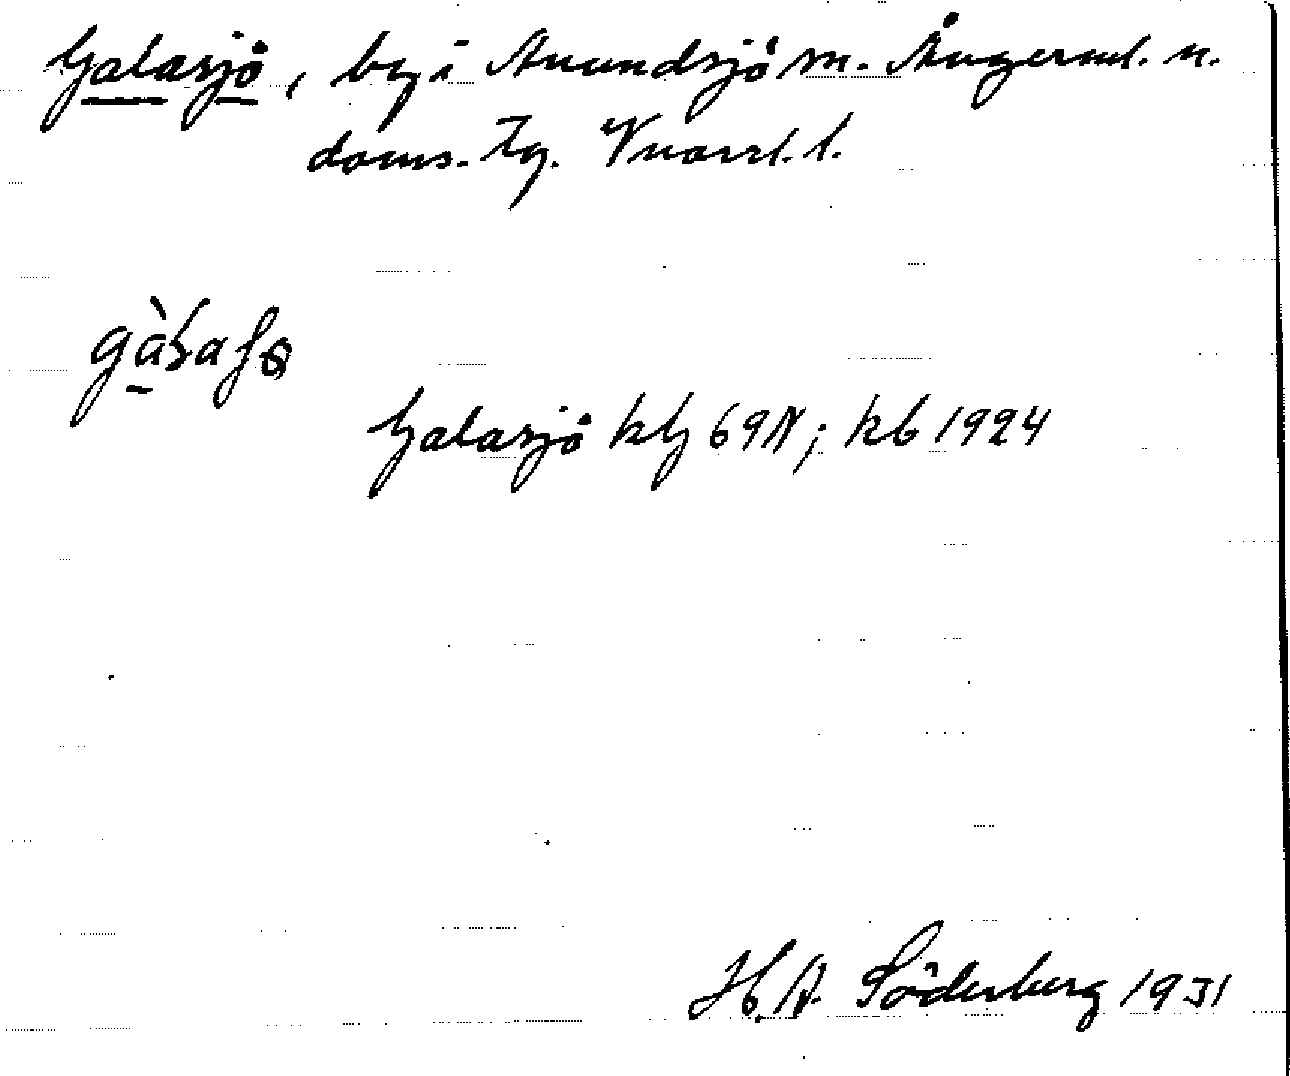 Galasjö, by i Anundsjö sn. Ångerml. n.
doms. tg. Vnorrl. l.
gàɽaʃɵ
Galasjö kbg 69N; kb 1924
H.A. Söderberg 1931